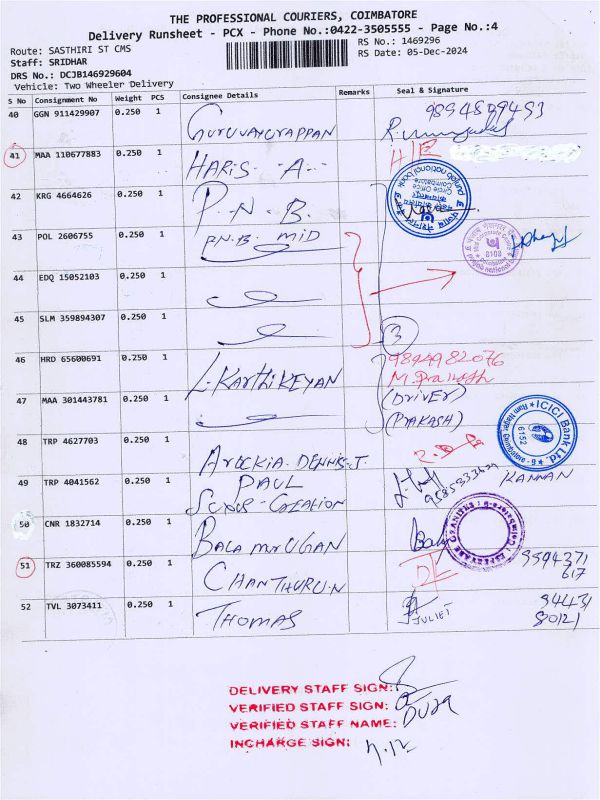 THE PROFESSIONAL COURIERS, COIMBATORE
Delivery Runsheet - PCX - Phone No.:0422-3505555 - Page No.:4
Route: SASTHIRI ST CMS
RS No.: 1469296
Staff: SRIDHAR
RS Date: 05-Dec-2024
DRS No.: DCJB146929604
Vehicle: Two Wheeler Delivery
S No Consignment No Weight PCS Consignee Details Remarks Seal & Signature
40 GGN 911429907 0.250 1 GURUVAYURAPPAN
41 MAA 110677883 0.250 1 HARIS-A- H/E
42 KRG 4664626 0.250 1 P.N.B.
43 POL 2606755 0.250 1 P.N.B. MID
44 EDQ 15052103 0.250 1
45 SLM 359894307 0.250 1 3
46 HRD 65600691 0.250 1 L.KARTHIKEYAN 9894982076
47 MAA 301443781 0.250 1 (DRIVER)
(PRAKASH)
48 TRP 4627703 0.250 1 AROCKIA. DENNIS.J. PAUL
ICICI Bank Ltd.
6152
49 TRP 4041562 0.250 1 KANNAN
50 CNR 1832714 0.250 1 BALAMURUGAN
51 TRZ 360085594 0.250 1 DL 9594371
617
52 TVL 3073411 0.250 1 THOMAS JULIET 94431
80121
DELIVERY STAFF SIGN:
VERIFIED STAFF SIGN:
VERIFIED STAFF NAME:
INCHARGE SIGN: